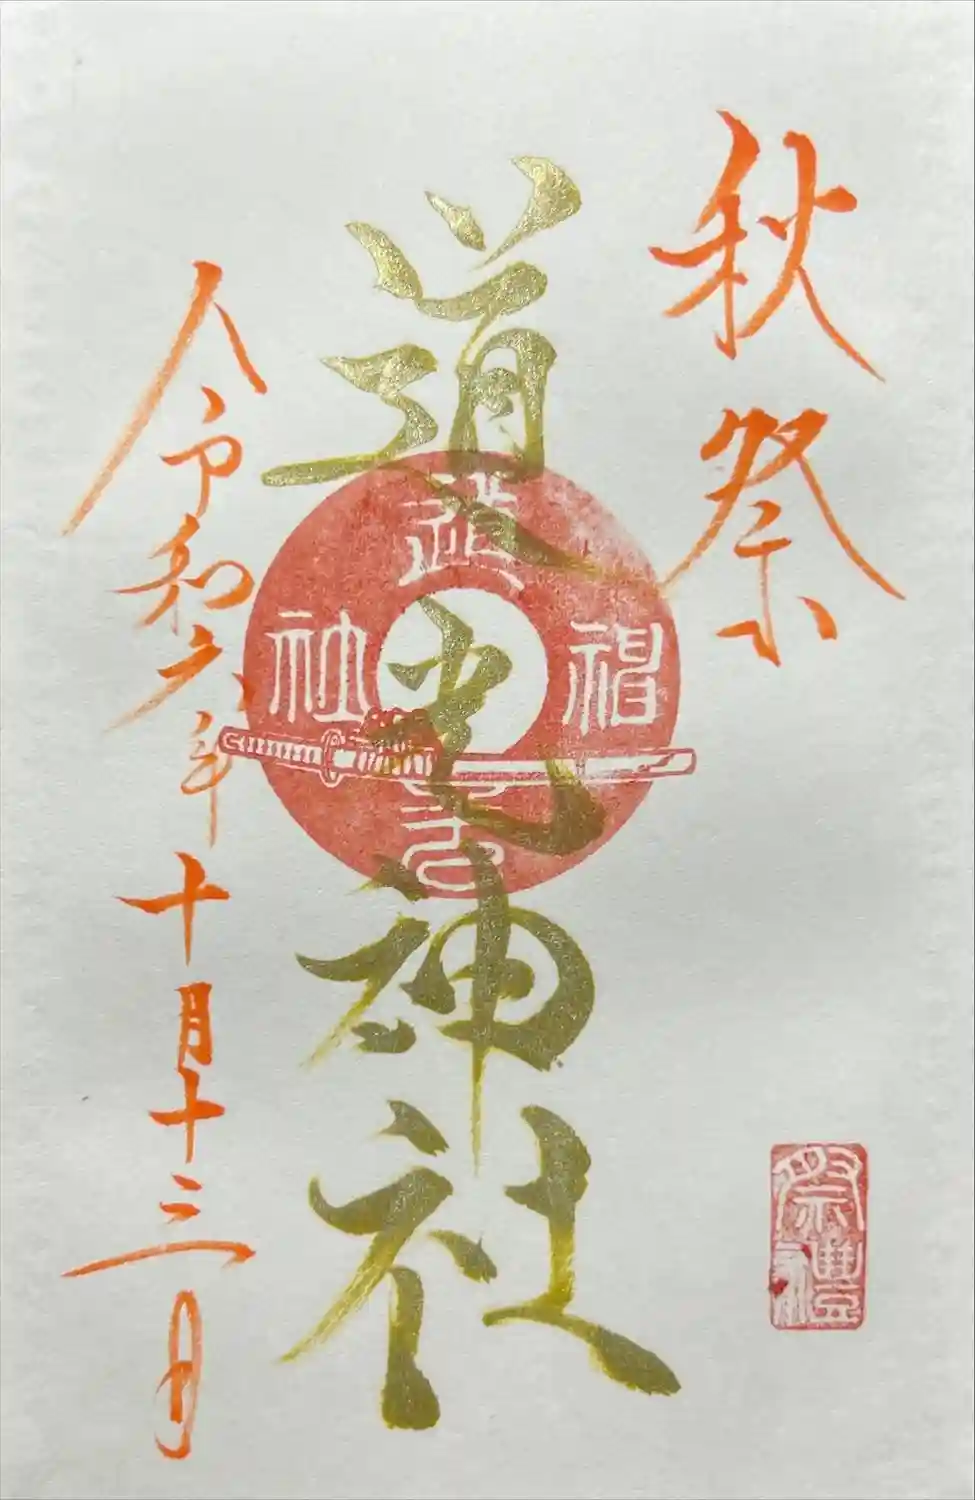 秋祭
道光神社
道光神社
令和六年十月十三日
祭禮